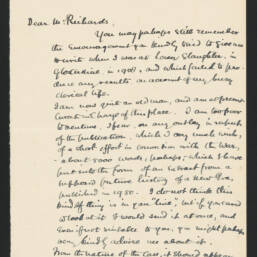 Dear Mr. Richards.
You may perhaps still remember
the encouragement you kindly tried to give me
to write when I was at Lower Slaughter, in
Gloucestershire in 1908, and which failed to pro-
duce any results on account of my busy
clerical life.
I am now quite an old man, and am at present
Curate in charge of this place. I am too poor
to venture, I fear, on any outlay in respect
of the publication, which I very much wish,
of a short effort in connection with the War,
- about 5000 words, perhaps; which I have
put into the form of an extract from a
supposed future history of a New Era,
published in 1950. I do not think this
kind of thing is in your "line", but if you cared
to look at it I would send it at once, and
even if not suitable to you, you might perhaps
very kindly advise me about it.
From the nature of the case, it should appear